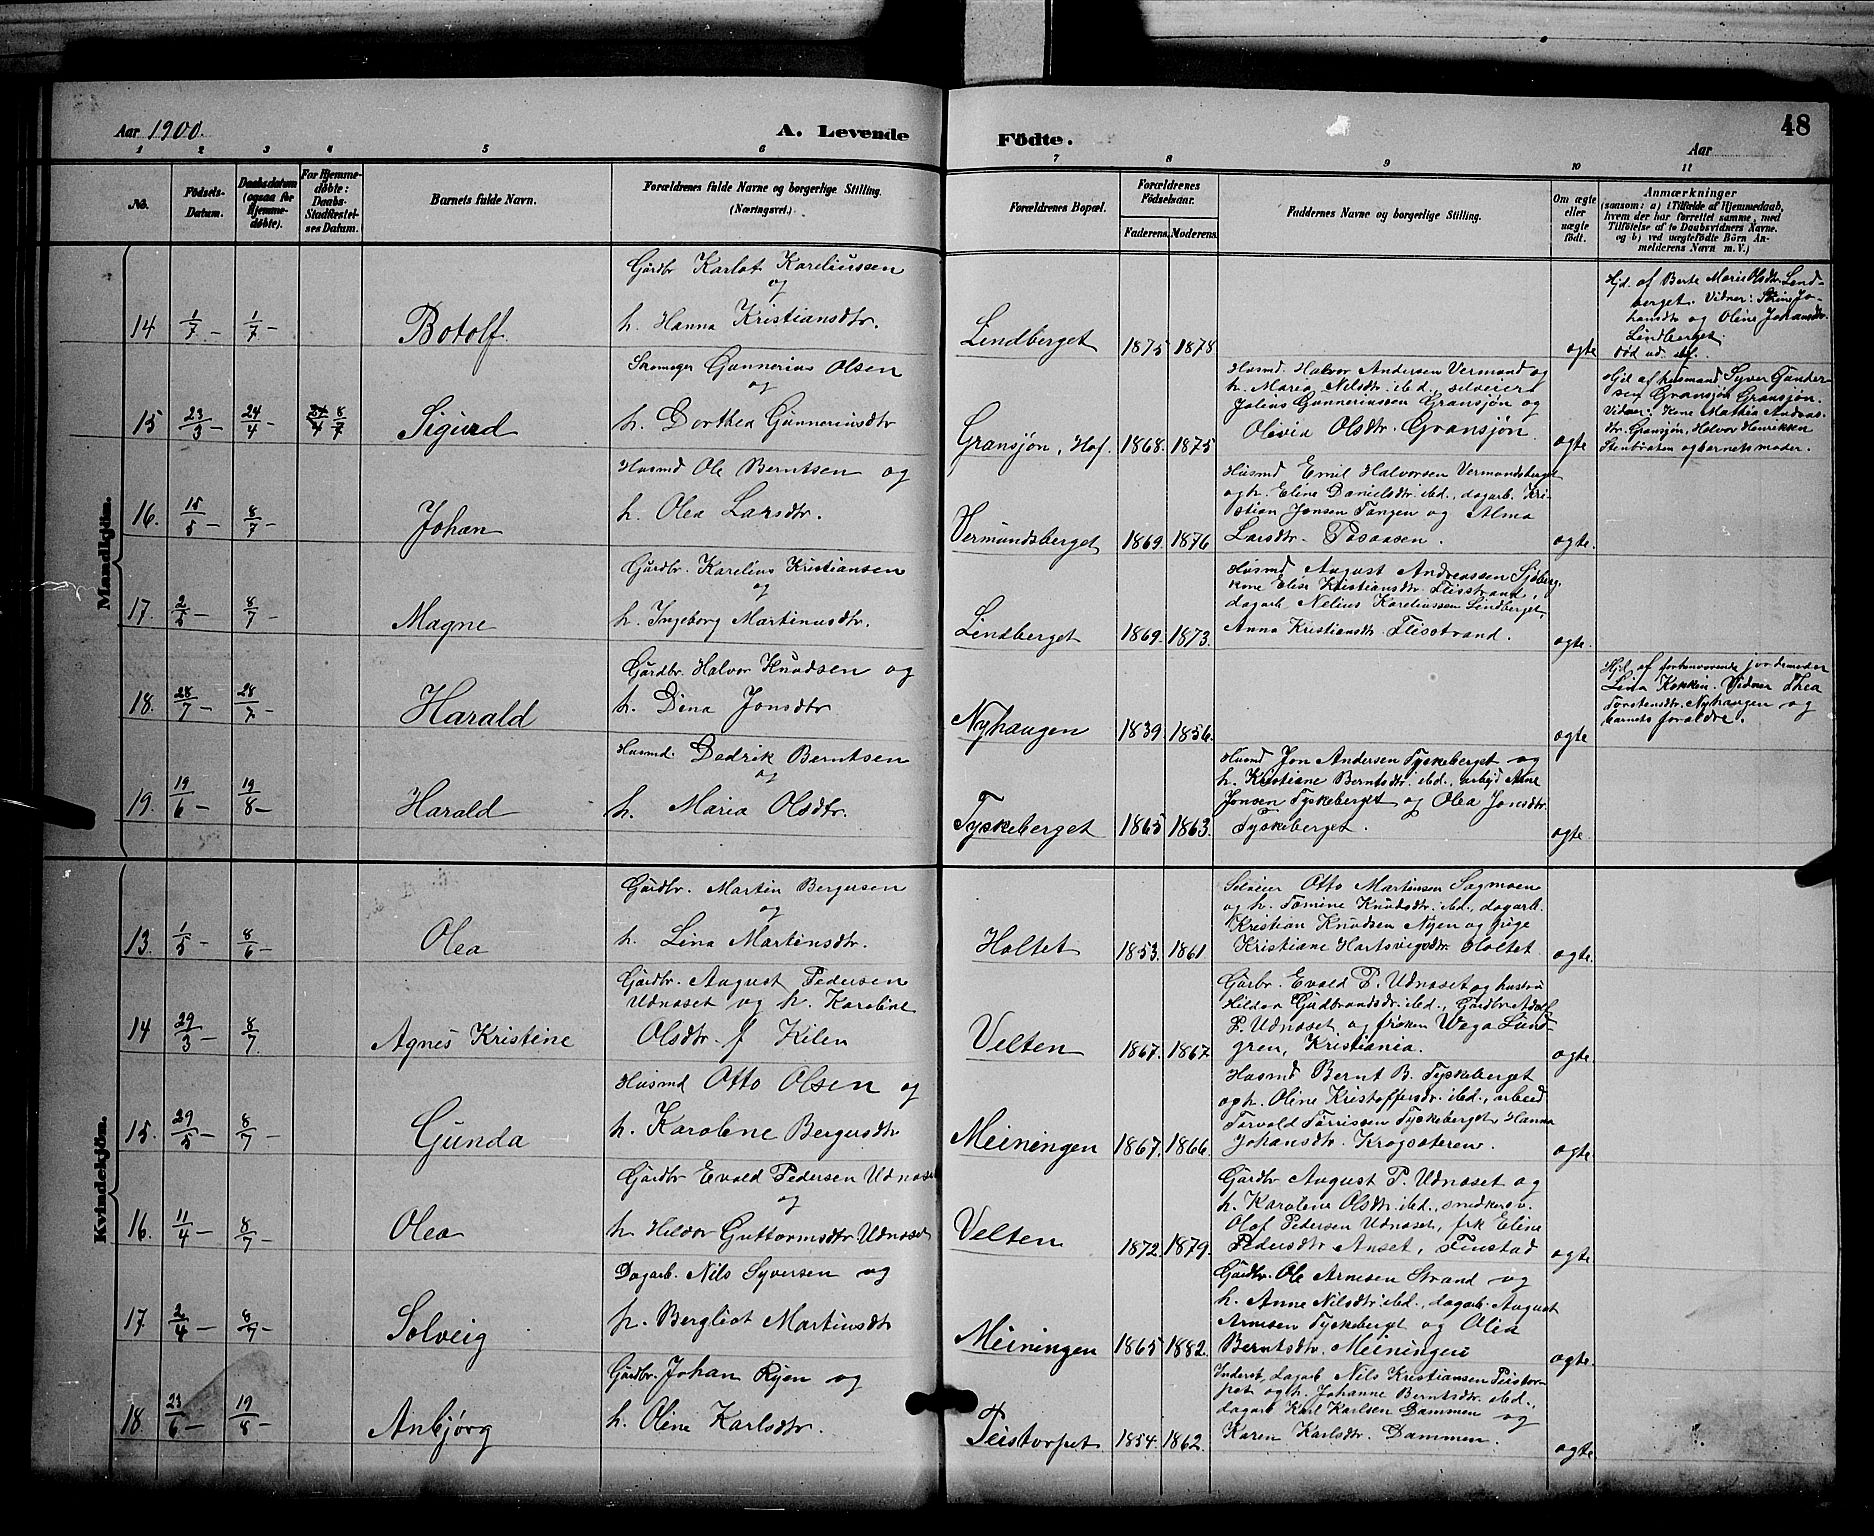 Aar 1900.
A. Levende
Födte.
48
Aar
1 2 3 4 5 6 7 8 9 10 11
No.
Födsels-Datum.
Daabsdatum (ogsaa for Hjemmedøbte).
For Hjemmedøbte: Daabs-Stadfæstelses Datum.
Barnets fulde Navn.
Forældrenes fulde Navne og borgerlige Stilling. (Næringsvei.)
Forældrenes Bopæl.
Forældrenes Födselsaar.
Faderens. Moderens.
Faddernes Navne og borgerlige Stilling.
Om ægte eller uægte født.
Anmærkninger
(saasom: a) i Tilfælde af Hjemmedaab, hvem der har forrettet samme, med Tilföielse af to Daabsvidners Navne. og b) ved uægtefödte Börn Anmelderens Navn m. V.)
Mandkjön.
14 1/7 – 1/7 – Botolf
Gårdbr Karlot Kareliussen
og
h. Hanna Kristiansdtr.
Lindberget 1875 1878 ogte
Hjd. af Berte Marie Olsdtr. Lind-
berget. Vidner: Stine Jo-
hansdtr og Oline Johansdtr
Lindberget.
15 23/3 – 24/4 – 8/7 Sigurd
Skomager Gunnerius Olsen
og
h. Dorthea Gunneriusdtr
Gransjøn, Hof. 1868. 1875
Husmd. Halvor Andersen Vermund og
h. Maria Nilsdtr. ibd., selveier
Julius Gunneriussen Gransjøn og
Olivia Olsdtr. Gransjøn.
ogte
Hjd af husmand Syver Gunder-
sen Gransjøn Gransjøn.
Vidner: Kone Mathea Andreas-
dtr. Gransjøn, Halvor Henriksen
Stenbraten og barnets moder.
16. 15/5 – 8/7 – Johan
Husmd Ole Berntsen og
h. Olea Larsdtr.
Vermundsberget 1869. 1876
Husmd Emil Halvorsen Vermundsberget
og h. Eline Danielsdtr. ibd., dagarb. Kri-
stian Jonsen Tangen og Alma
Larsdtr. Posaasen.
ogte.
17. 2/5 – 8/7 – Magne
Gårdbr. Karelius Kristiansen
og
h. Ingeborg Martinusdtr.
Lindberget 1869. 1873.
Husmd August Andreassen Sjøberg,
kone Elise Kristiansdtr. Flisstrand,
dagarb. Nelius Kareliussen Lindberget,
Anna Kristiansdtr. Flisstrand.
ogte.
18. 28/7 – 28/7 – Harald
Gårdbr. Halvor Knudsen og
h. Dina Jonsdtr
Nyhaugen 1839. 1856. ogte
Hjd. af forhenværende jordemoder
Lina Kokkin. Vidner Thea
Torstensdtr. Nyhaugen og
barnets forældre.
19. 19/6 – 19/8 – Harald
Husmd. Dedrik Berntsen
og
h. Maria Olsdtr.
Tyskeberget 1865 1863.
Husmd Jon Andersen Tyskeberget og
h. Kristiane Berntsdtr. ibd., arbejd Arne
Jonsen Tyskeberget og Olea Jonsdtr.
Tyskeberget.
ogte
Kvindekjön.
13. 1/5 – 8/6 – Olea
Gårdbr. Martin Bergersen
og
h. Lina Martinsdtr.
Holtet 1853. 1861.
Selveier Otto Martinsen Sagmoen
og h. Tomine Knudsdtr. ibd., dagarb.
Kristian Knudsen Nyen og pige
Kristiane Hartvigsdtr. Holtet
ogte.
14 29/3 – 8/7. Agnes Kristine
Gårdbr. August Pedersen
Udnæset og h. Karoline
Olsdtr. f Kilen
Velten 1867. 1867
Gårbr. Evald P. Udnæset og hustru
Hilda Gudbrandsdtr. ibd., Gårdbr. Adolf
P. Udnæset og frøken Waga Lund-
gren, Kristiania.
ogte.
15. 29/5 – 8/7 – Gunda
Husmd Otto Olsen og
h. Karoline Bergersdtr
Meiningen 1867. 1866.
Husmd Bernt B. Tyskeberget
og h. Oline Kristoffersdr. ibd., arbeid
Torvald Torrissen Tyskeberget, Hanna
Johansdtr. Krogsæteren.
ogte.
16. 11/4 – 8/7 – Olea
Gårdbr Evald Pedersen Udnæset
og
h. Hilda Guttormsdtr Udnæset
Velten 1872. 1879.
Gårdbr August P. Udnæset og
h. Karoline Olsdtr. ibd., snedkersv.
Olaf Pedersen Udnæset, frk Eline
Pedersdtr Anset, Finstad
ogte
17 2/4 – 8/7 – Solveig
Dagarb. Nils Syversen og
h. Bergliot Martinsdtr
Meiningen 1865 1882.
Gårdbr. Ole Arnesen Strand og
h. Anne Nilsdtr. ibd., dagarb. August
Arnesen Tyskeberget og Olea
Berntsdtr. Meiningen
ogte.
18. 23/6 – 19/8 – Anbjørg
Gårdbr. Johan Ryen og
h. Oline Karlsdtr.
Peistorpet 1854. 1862.
Inderst, dagarb Nils Kristiansen Peistor-
pet og h. Johanne Berntsdtr. ibd.,
dagarb Karl Karlsen Dammen og
Karen Karlsdtr. Dammen.
ogte